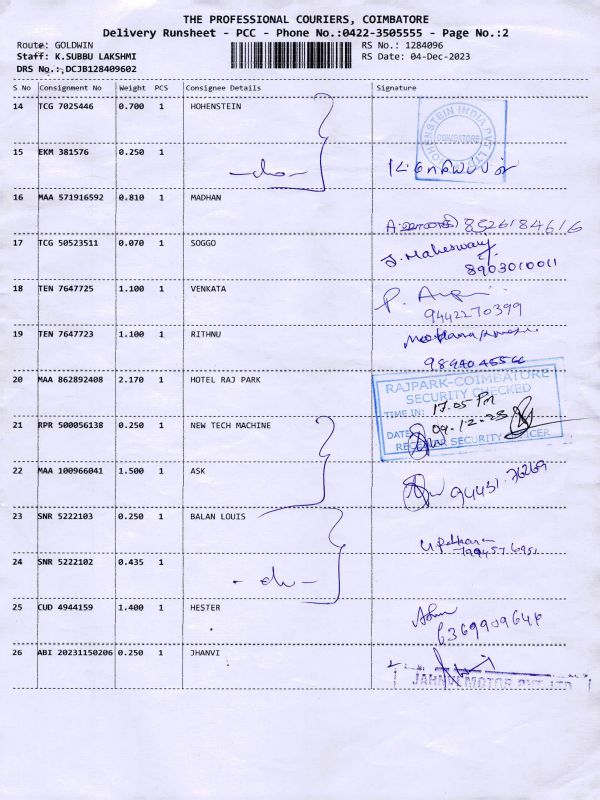 THE PROFESSIONAL COURIERS, COIMBATORE
Delivery Runsheet - PCC - Phone No.:0422-3505555 - Page No.:2
Route: GOLDWIN RS No.: 1284096
Staff: K.SUBBU LAKSHMI RS Date: 04-Dec-2023
DRS No.:,DCJB128409602
S No Consignment No Weight PCS Consignee Details Signature
14 TCG 7025446 0.700 1 HOHENSTEIN
HOHENSTEIN INDIA PVT LTD
COIMBATORE
15 EKM 381576 0.250 1
16 MAA 571916592 0.810 1 MADHAN
8526184616
17 TCG 50523511 0.070 1 SOGGO
J. Maheswary
8903010011
18 TEN 7647725 1.100 1 VENKATA
9442270399
19 TEN 7647723 1.100 1 RITHNU
20 MAA 862892408 2.170 1 HOTEL RAJ PARK
RAJPARK-COIMBATORE
SECURITY CHECKED
TIME IN: 17.05 PM
DATE 04-12-23
SECURITY OFFICER
21 RPR 500056138 0.250 1 NEW TECH MACHINE
22 MAA 100966041 1.500 1 ASK
94431.76269
23 SNR 5222103 0.250 1 BALAN LOUIS
24 SNR 5222102 0.435 1
- do -
25 CUD 4944159 1.400 1 HESTER
6369909644
26 ABI 20231150206 0.250 1 JHANVI
MOTOR PVT LTD